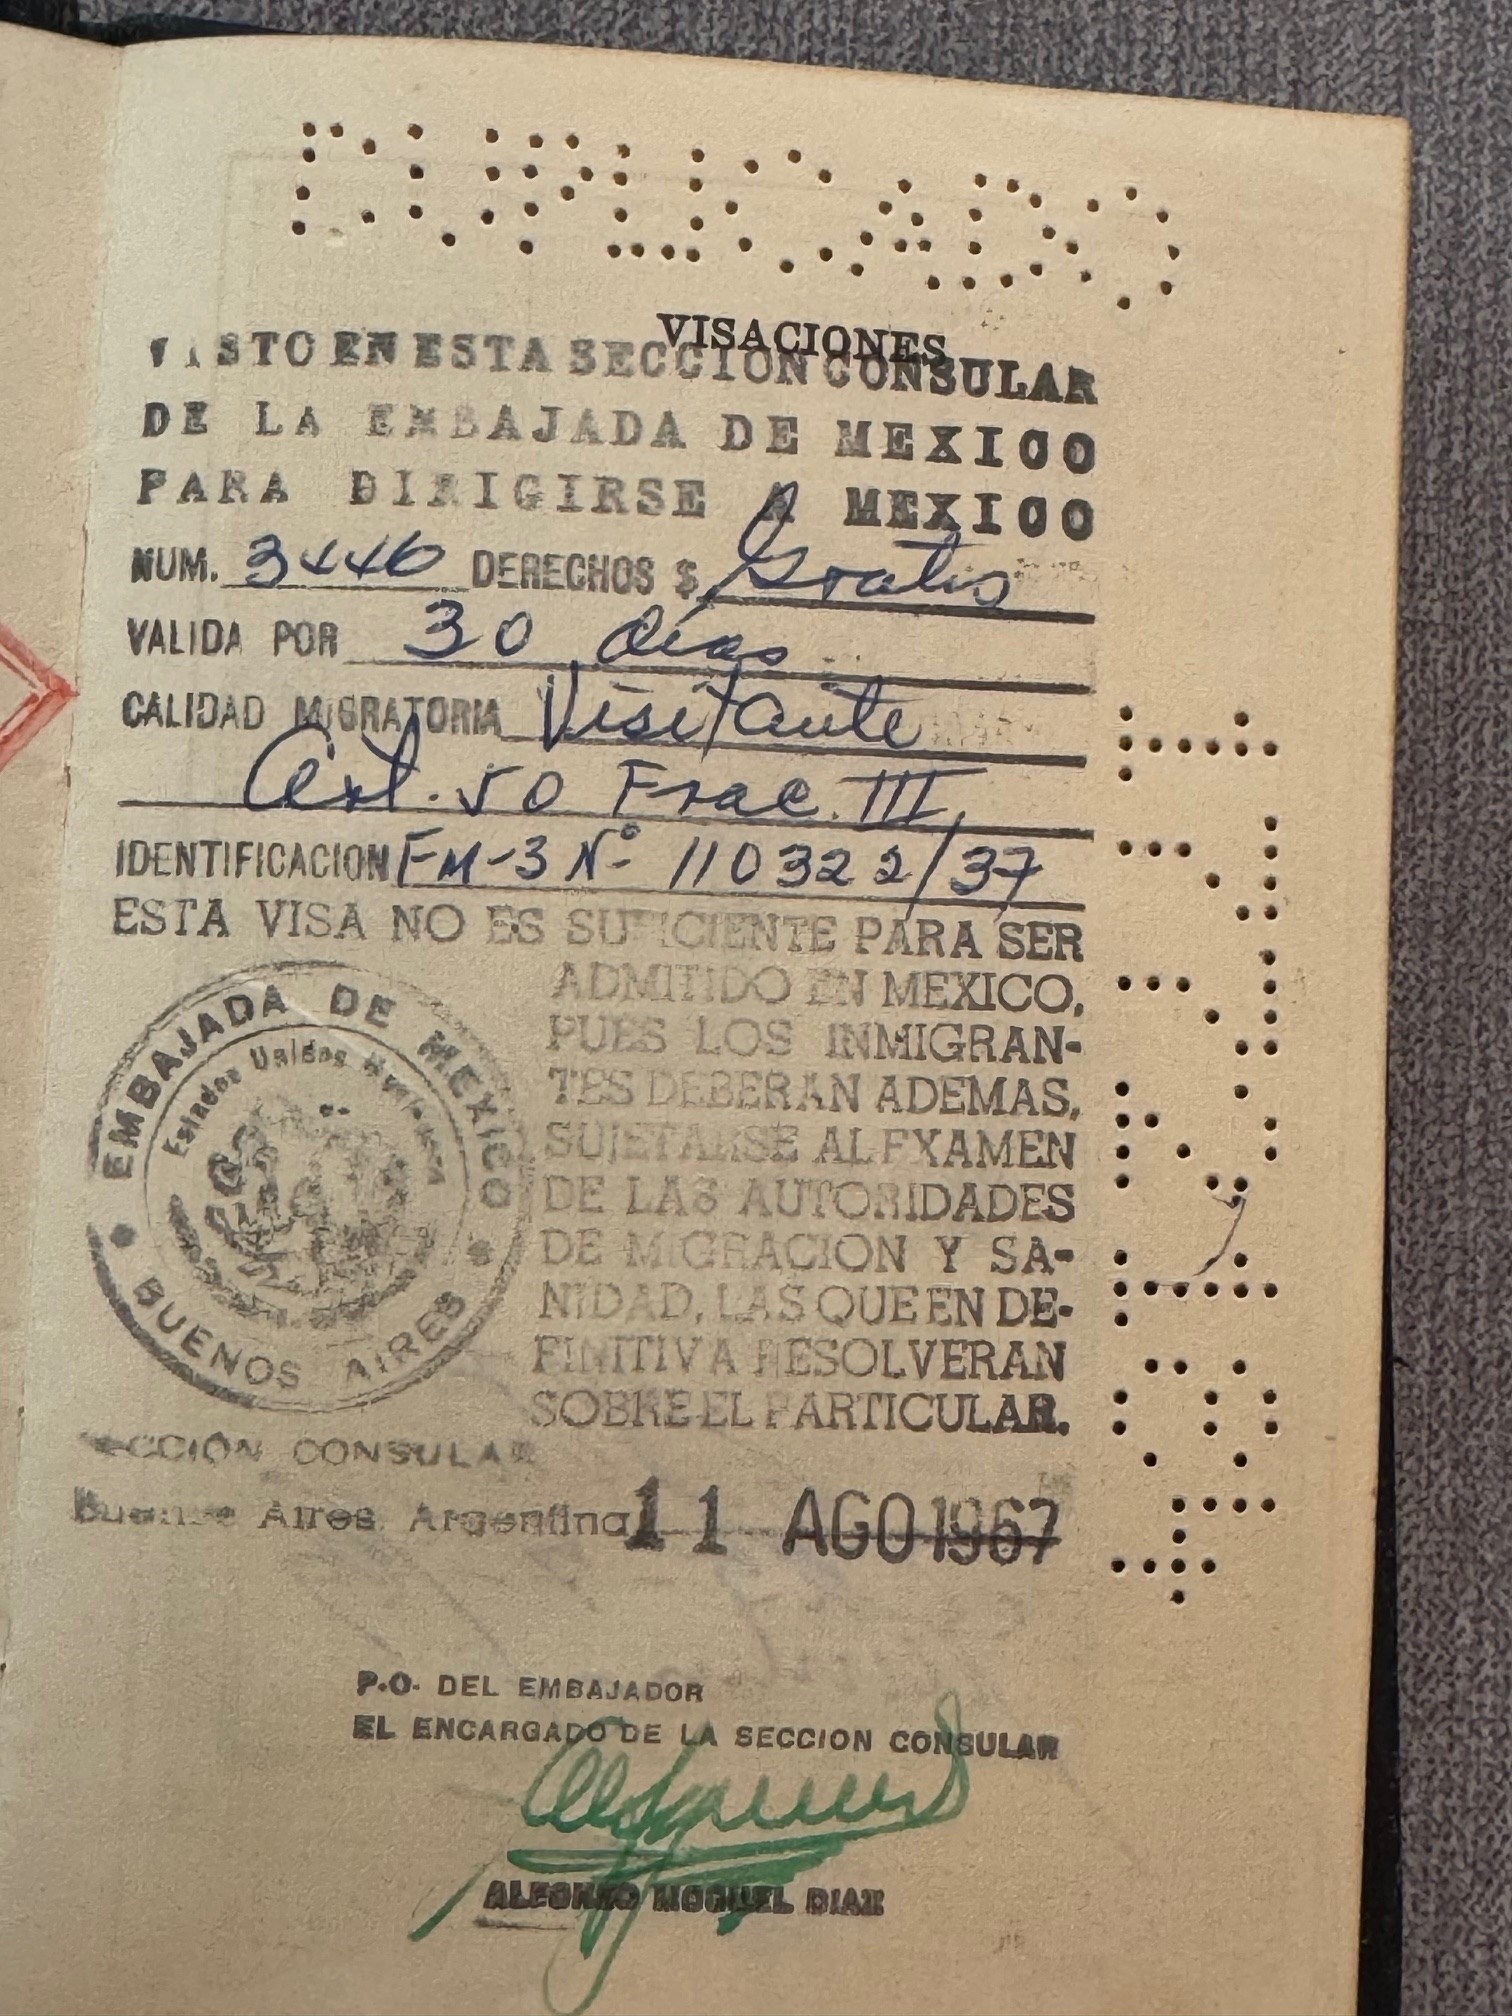 DUPLICADO
VISACIONES
VISTO EN ESTA SECCION CONSULAR
DE LA EMBAJADA DE MEXICO
PARA DIRIGIRSE A MEXICO
NUM. 3446 DERECHOS $ Gratis
VALIDA POR 30 días
CALIDAD MIGRATORIA Visitante
Art. 50 Frac. III,
IDENTIFICACION FM-3 Nº 110322/37
ESTA VISA NO ES SUFICIENTE PARA SER
ADMITIDO EN MEXICO,
PUES LOS INMIGRAN-
TES DEBERAN ADEMAS,
SUJETARSE AL EXAMEN
DE LAS AUTORIDADES
DE MIGRACION Y SA-
NIDAD, LAS QUE EN DE-
FINITIVA RESOLVERAN
SOBRE EL PARTICULAR.
EMBAJADA DE MEXICO
Estados Unidos Mexicanos
BUENOS AIRES
SECCION CONSULAR
Buenos Aires Argentina 11 AGO 1967
P.O. DEL EMBAJADOR
EL ENCARGADO DE LA SECCION CONSULAR
ALFONSO MOGUEL DIAZ